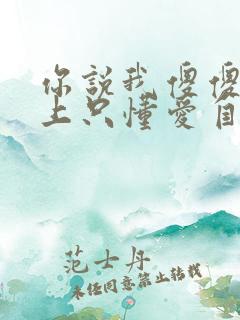 你說我傻傻
上只懂愛自
范士丹
未任同意禁止转载